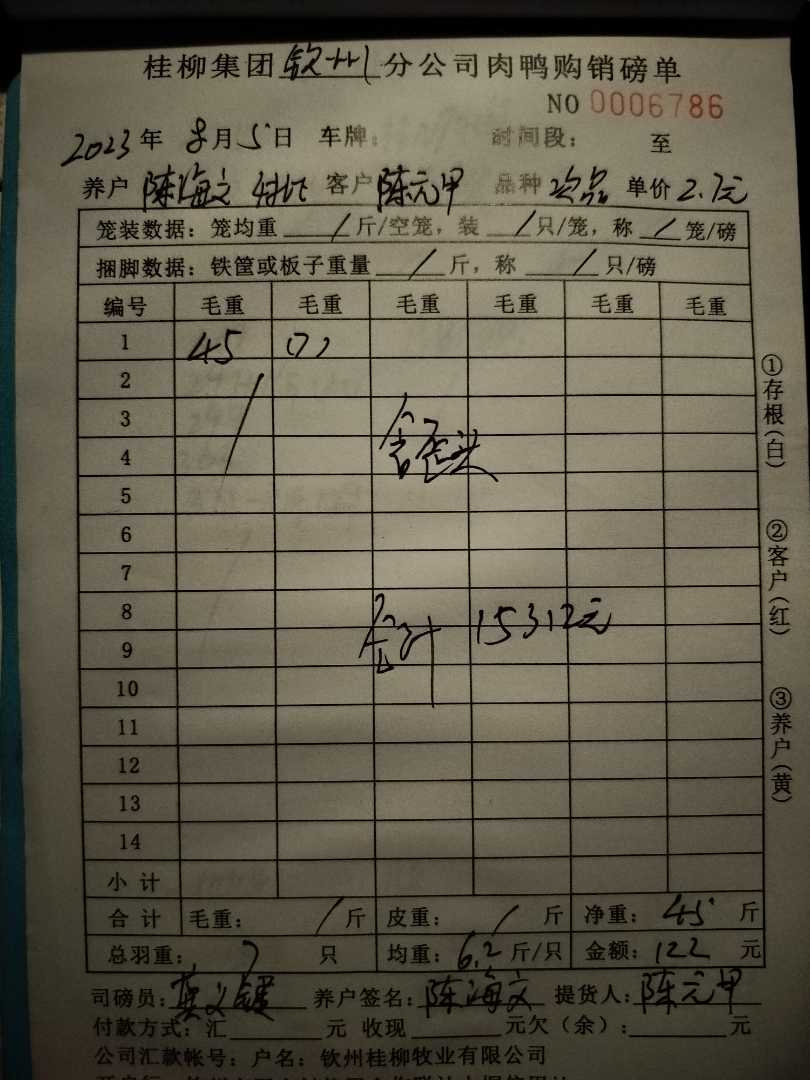 桂柳集团钦州分公司肉鸭购销磅单
NO 0006786
2023年 8月5日 车牌: 时间段: 至
养户 陈海文 客户 陈元甲 品种 次品 单价 2.7元
笼装数据: 笼均重 / 斤/空笼, 装 / 只/笼, 称 / 笼/磅
捆脚数据: 铁筐或板子重量 / 斤, 称 / 只/磅
编号 毛重 毛重 毛重 毛重 毛重 毛重
1 45 (7)
2
3
4 含歪头
5
6
7
8 合计 15312元
9
10
11
12
13
14
小计
合计 毛重: / 斤 皮重: / 斤 净重: 45 斤
总羽重: 7 只 均重: 6.2 斤/只 金额: 122 元
司磅员: 莫义键 养户签名: 陈海文 提货人: 陈元甲
付款方式: 汇 元 收现 元欠(余): 元
公司汇款帐号: 户名: 钦州桂柳牧业有限公司
①存根(白)
②客户(红)
③养户(黄)